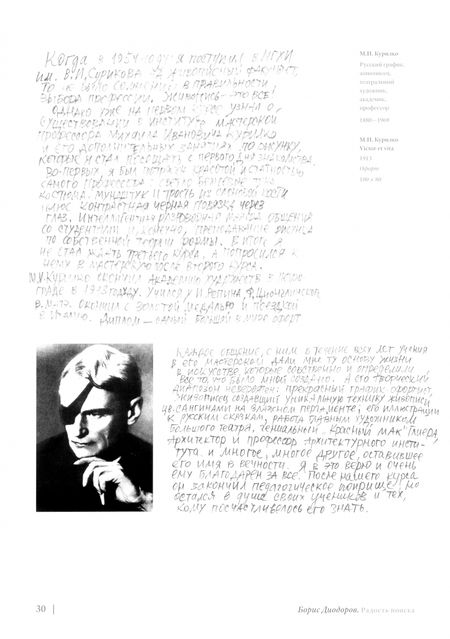 Когда в 1954 году я поступил в МГХИ
им. В.И. Сурикова на живописный факультет,
то не было сомнений в правильности
выбора профессии. Живопись – это всё!
Однако уже на первом курсе узнал о
существовании в институте мастерской
профессора Михаила Ивановича Курилко
и его дополнительных занятиях по рисунку,
которые я стал посещать с первого дня знакомства.
Во-первых, я был красотой и статностью
самого профессора: светло бежевые тона
костюма. Мундштук и трость из слоновой кости
плюс контрастная чёрная повязка через
глаз. Интеллигентная манера общения
со студентами и, конечно, преподавание рисунка
по собственной теории формы. В итоге я
не стал ждать третьего курса, а попросился к
нему в мастерскую после второго курса.
М.И. Курилко окончил Академию художеств в
граде в 1913 году. Учился у И. Репина,
В. Матэ. Окончил с золотой медалью и поездкой
в Италию. Диплом – самый большой в мире офорт
М.П. Курилко
Русский график,
живописец,
театральный
художник,
академик,
профессор
1880–1969
М.П. Курилко
1913
Офорт
Каждое общение с ним в течение всех лет учения
в его мастерской дали мне ту основу жизни
в искусстве, которые собственно и определили
всё то, что было мною создано. А его творческий
диапазон невероятен: прекрасный график офортист,
живописец создавший уникальную технику живописи
сангинами на влажном пергаменте; его иллюстрации
к русским сказкам, работа главным художником
Большого театра, гениальный „Красный мак" Глиэра,
Архитектор и профессор Архитектурного инсти-
тута и многое, многое другое, оставившее
его имя в вечности. Я в это верю и очень
ему благодарен за всё. После нашего курса
он закончил педагогическое поприще, но
остался в душе своих учеников и тех,
кому посчастливилось его знать.
30 |
Борис Диодоров. Радость поиска